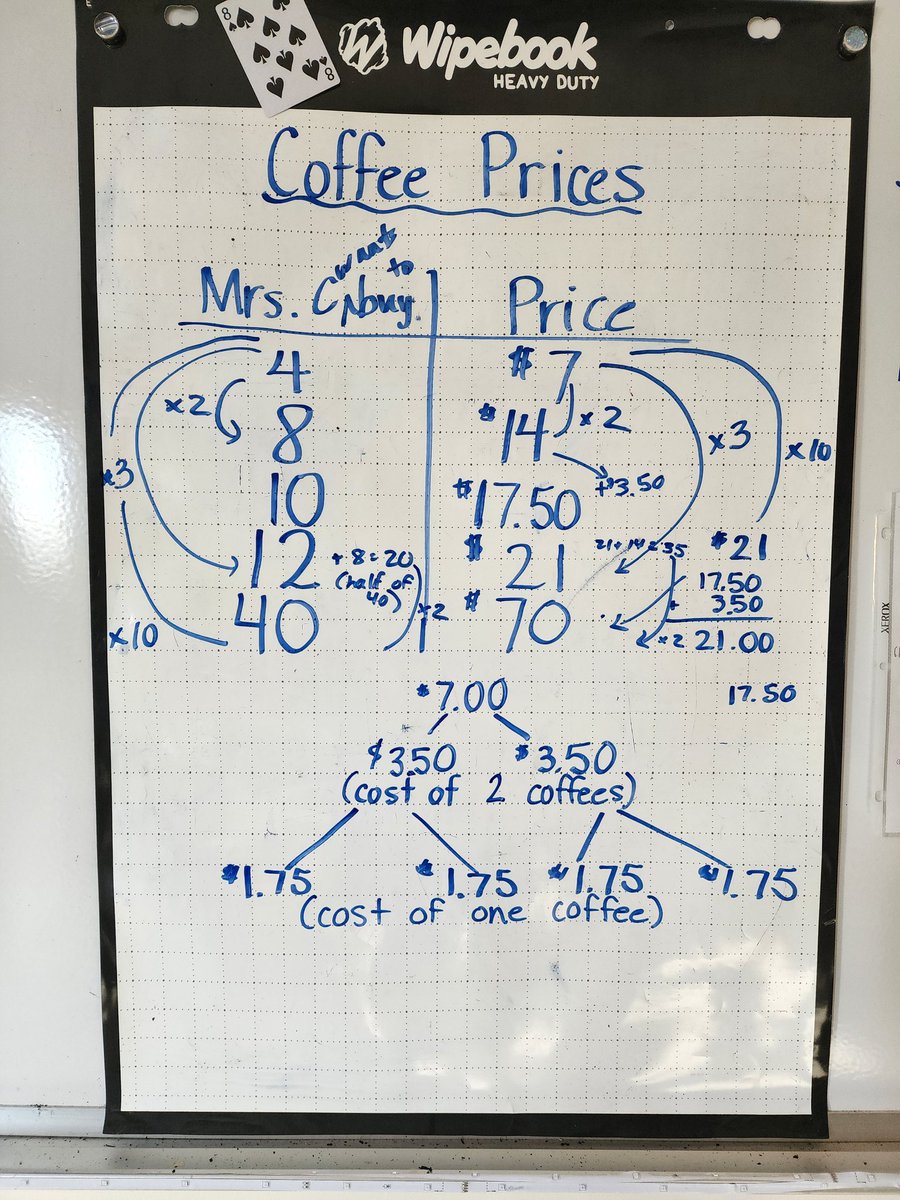 8
8
Wipebook
HEAVY DUTY
Coffee Prices
Mrs. C wants to buy. Price
4 $7
×2 ×2
8 $14
×3 ×10
×3 +$3.50
10 $17.50
12 + 8 = 20 (half of 40) $21 21 + 14 = 35 $21
17.50
+ 3.50
×2
40 $70 ×2 21.00
×10
$7.00 17.50
$3.50 $3.50
(cost of 2 coffees)
$1.75 $1.75 $1.75 $1.75
(cost of one coffee)
XEROX